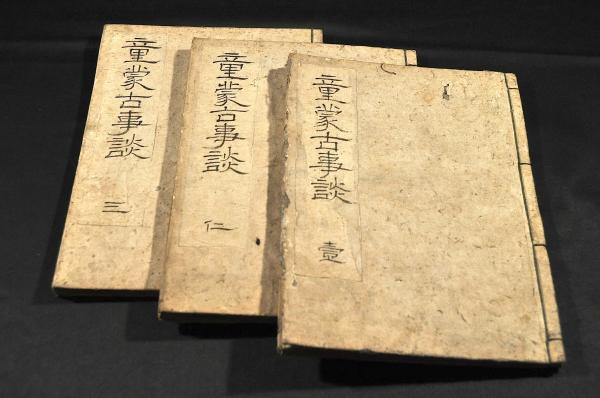 童蒙古事談
壹
童蒙古事談
仁
童蒙古事談
三